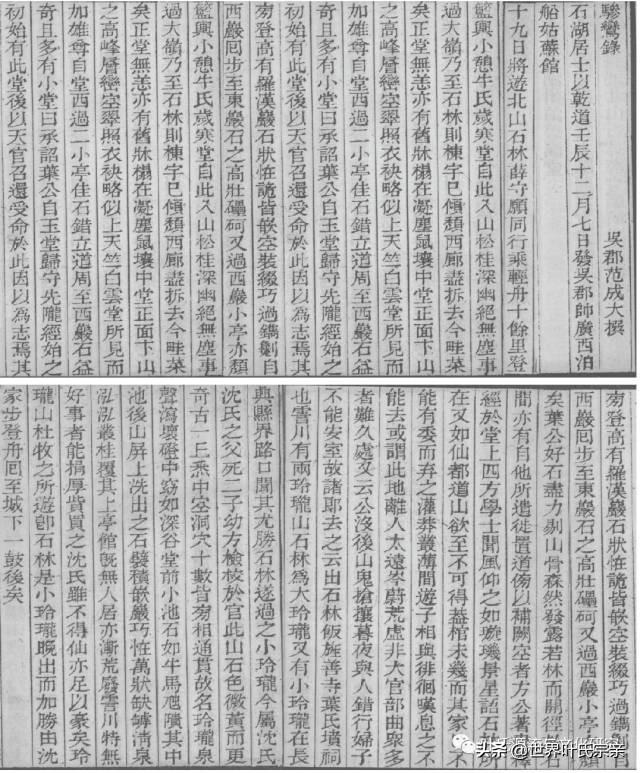 驂鸞錄
吳郡范成大撰
石湖居士以乾道壬辰十二月七日發吳郡帥廣西泊
船姑蘇館
十九日將遊北山石林薛守願同行乘輕舟十餘里登
籃輿小憩牛氏歲寒堂自此入山松桂深幽絕無塵事
過大嶺乃至石林則棟宇已傾頹西廊盡拆去今畦菜
矣正堂無恙亦有舊牀榻在凝塵鼠壤中堂正面下山
之高峰層巒空翠照衣袂略似上天竺白雲堂所見而
加雄尊自堂西過二小亭佳石錯立道周至西巖石益
奇且多有小堂曰承詔葉公自玉堂歸守先隴經始之
初始有此堂後以天官召還受命於此因以為志焉其
旁登高有羅漢巖石狀怪詭皆嵌空裝綴巧過鐫劖自
西巖囘步至東巖石之高壯礧砢又過西巖小亭亦頹
之高峰層巒空翠照衣袂略似上天竺白雲堂所見而
加雄尊自堂西過二小亭佳石錯立道周至西巖石益
奇且多有小堂曰承詔葉公自玉堂歸守先隴經始之
初始有此堂後以天官召還受命於此因以為志焉其
旁登高有羅漢巖石狀怪詭皆嵌空裝綴巧過鐫劖自
西巖囘步至東巖石之高壯礧砢又過西巖小亭
矣葉公好石盡力剔山骨森然發露若林而開徑於
間亦有自他所遣徙置道傍以補闕空者方公著
經於堂上四方學士聞風仰之如璇璣景星語石林所
在又如仙都道山欲至不可得蓋棺未幾而其家已不
能有委而弃之灌莽叢薄間遊子相與徘徊嘆息之不
能去或謂此地離人太遠岑蔚荒虛非大官部曲眾多
者難久處又云公沒後山鬼搶攘暮夜與人錯行婦子
不能安室故諸郎去之云出石林飯旌善寺葉氏墳祠
也霅川有兩玲瓏山石林為大玲瓏又有小玲瓏在長
興縣界路口聞其尤勝石林遂過之小玲瓏今屬沈氏
沈氏之父死二子幼方檢校於官此山石色微黃而更
奇古一丘悉中空洞穴十數皆旁相通貫故名玲瓏泉
聲瀉壞磴中窈如深谷堂前小池石如牛馬虺隤其中
池後山屏上洗出之石襞積嵌巖巧怪萬狀缺罅清泉
泓泓叢桂覆其上亭館既無人居亦漸荒廢霅川特無
好事者能捐厚貲買之沈氏雖不得仙亦足以豪矣玲
瓏山杜牧之所遊卽石林是小玲瓏晚出而加勝由沈
家步登舟囘至城下一鼓後矣
头条@世界叶氏宗亲